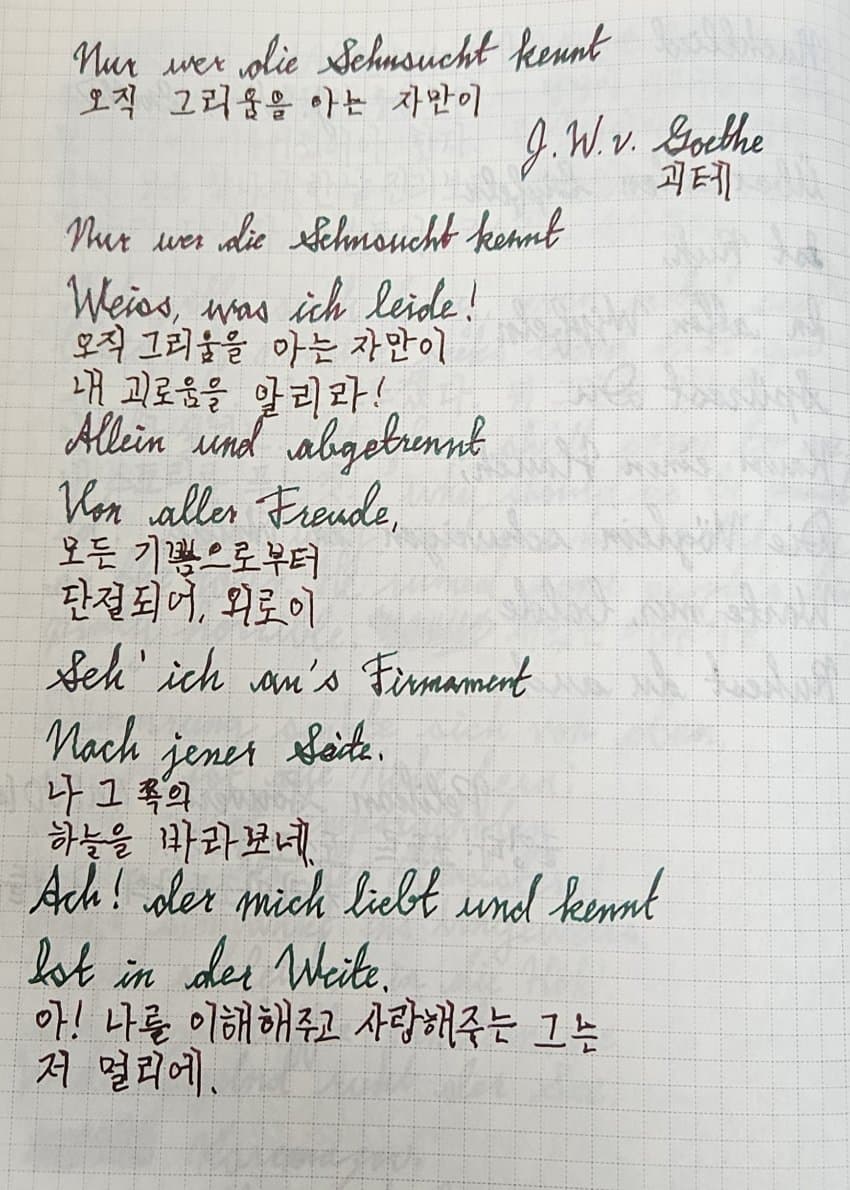 Nur wer die Sehnsucht kennt
오직 그리움을 아는 자만이
J. W. v. Goethe
괴테
Nur wer die Sehnsucht kennt
Weiss, was ich leide!
오직 그리움을 아는 자만이
내 괴로움을 알리라!
Allein und abgetrennt
Von aller Freude,
모든 기쁨으로부터
단절되어, 외로이
Seh' ich an's Firmament
Nach jener Seite.
나 그 쪽의
하늘을 바라보네.
Ach! der mich liebt und kennt
Ist in der Weite.
아! 나를 이해해주고 사랑해주는 그는
저 멀리에.